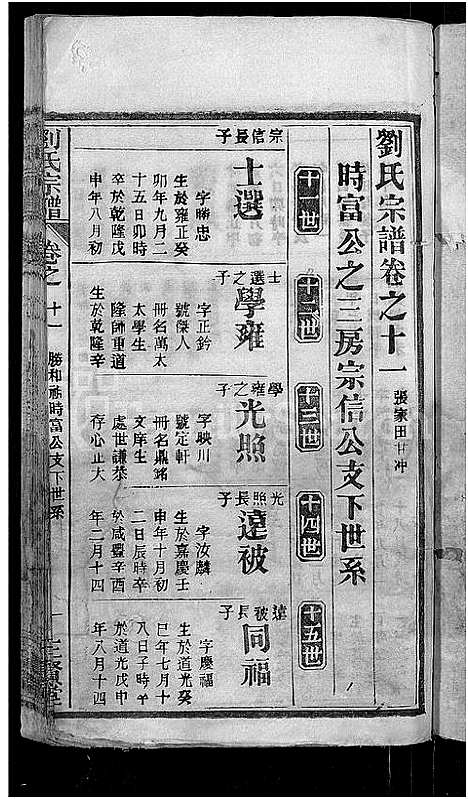 劉氏宗譜卷之十一
張家田廿冲
時富公之三房宗信公支下世系
十一世
十二世
十三世
十四世
十五世
宗信長子
士選
字勝忠
生於雍正癸
卯年九月二
十五日卯時
卒於乾隆戊
申年八月初
士選之子
學雍
字正鈐
號傑人
冊名萬太
太學生
隆師重道
生於乾隆辛
學雍之子
光照
字映川
號定軒
冊名鼎銘
文庠生
處世謙恭
存心正大
光照長子
遠被
字汝麟
生於嘉慶壬
申年十月初
二日辰時卒
於咸豐辛酉
年二月十四
遠被長子
同福
字慶福
生於道光癸
巳年七月十
八日子時卒
於道光戊申
年八月十四
劉氏宗譜
卷之十一
勝和祐時富公支下世系
三賢堂